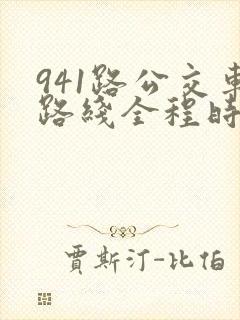 941路公交車
路綫全程時
賈斯汀-比伯